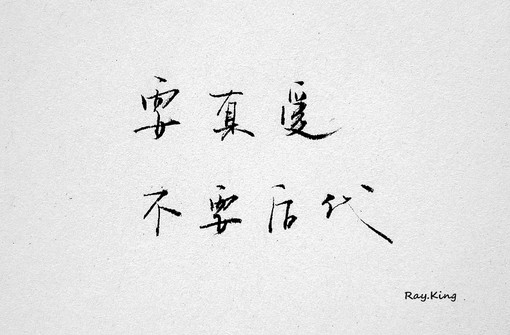 要真爱
不要后代
Ray.King